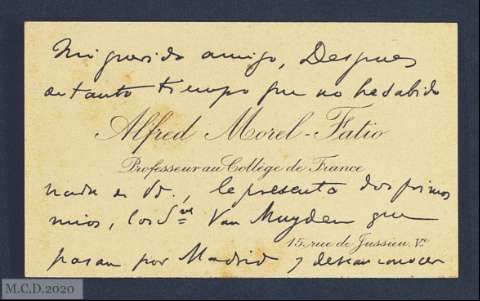 Mi querido amigo, Despues
de tanto tiempo que no he sabido
Alfred Morel-Fatio
Professeur au Collège de France
nada de Vd., le presento dos primos
mios, los Sres Van Muyden que
15, rue de Jussieu. Ve
pasan por Madrid y desean conocer
M.C.D.2020